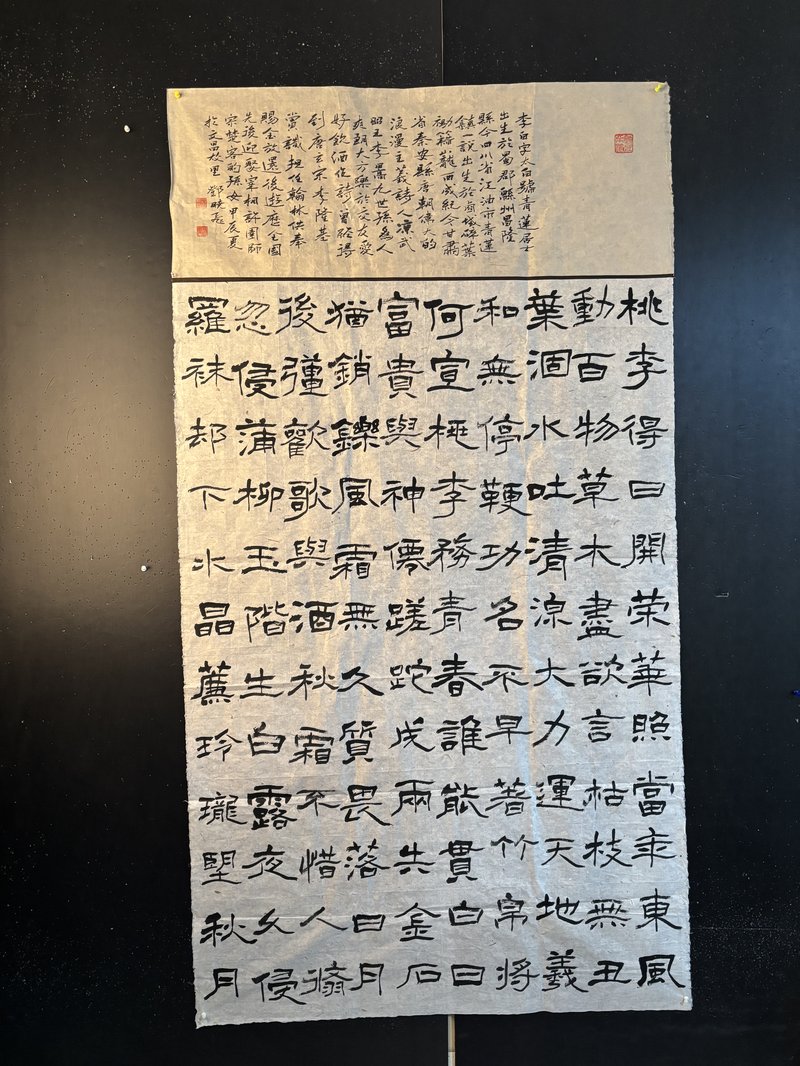 李白字太白號青蓮居士
出生於蜀郡緜州昌隆
縣今四川省江油市青蓮
鎮一說出生於西域碎葉
祖籍隴西成紀今甘肅
省秦安縣唐朝偉大的
浪漫主義詩人凉武
昭王李暠九世孫為人
爽朗大方樂於交友愛
好飲酒作詩曾經得
到唐玄宗李隆基
賞識担任翰林供奉
賜金放還後遊歷全國
先後迎娶宰相許圉師
宗楚客的孫女甲辰夏
於文昌故里 鄧映亮
桃李得日開荣華照當乘東風
動百物草木盡欲言枯枝無丑
葉涸水吐清源大力運天地羲
和無停鞭功名不早著竹帛將
何宣桃李務青春誰能貫白日
富貴與神僊蹉跎成兩失金石
猶銷鑠風霜無久質畏落日月
後彊歡歌與酒秋霜不惜人倏
忽侵蒲柳玉階生白露夜久侵
羅袜却下水晶簾玲瓏望秋月